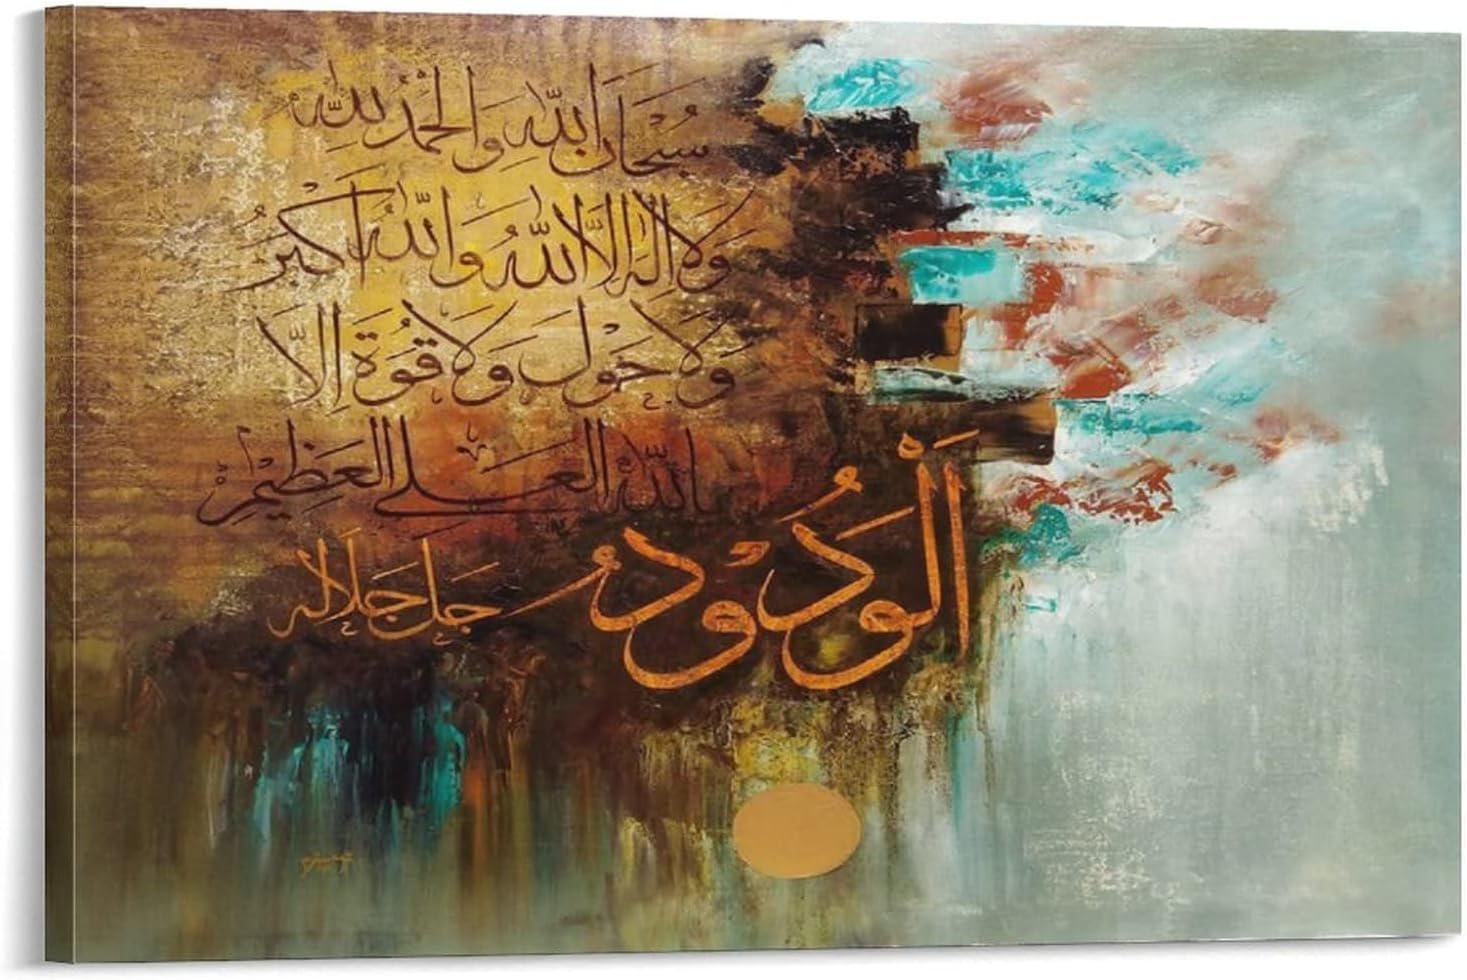 سُبْحَانَ اللّٰهِ وَالْحَمْدُ لِلّٰهِ
وَلَا اِلٰهَ اِلَّا اللّٰهُ وَاللّٰهُ اَكْبَرُ
وَلَا حَوْلَ وَلَا قُوَّةَ اِلَّا
بِاللّٰهِ الْعَلِيِّ الْعَظِيْمِ
اَلْوَدُوْدُ جَلَّ جَلَالُهُ